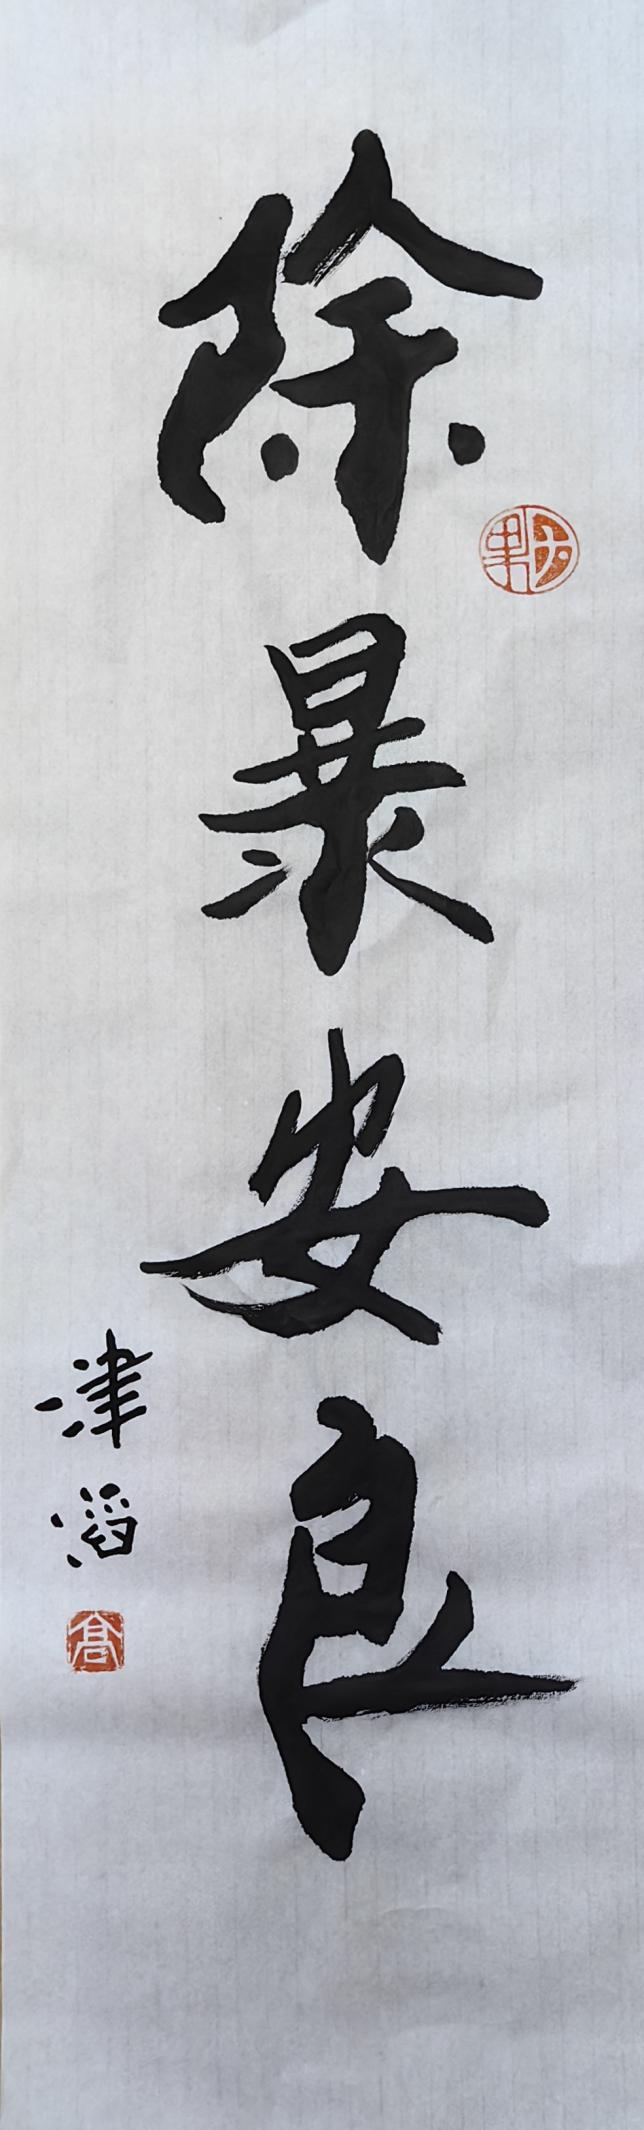 除暴安良
津滔
高